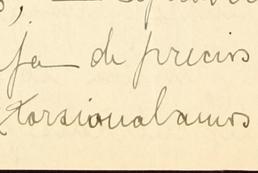 ja de precios
xtorsionabamos